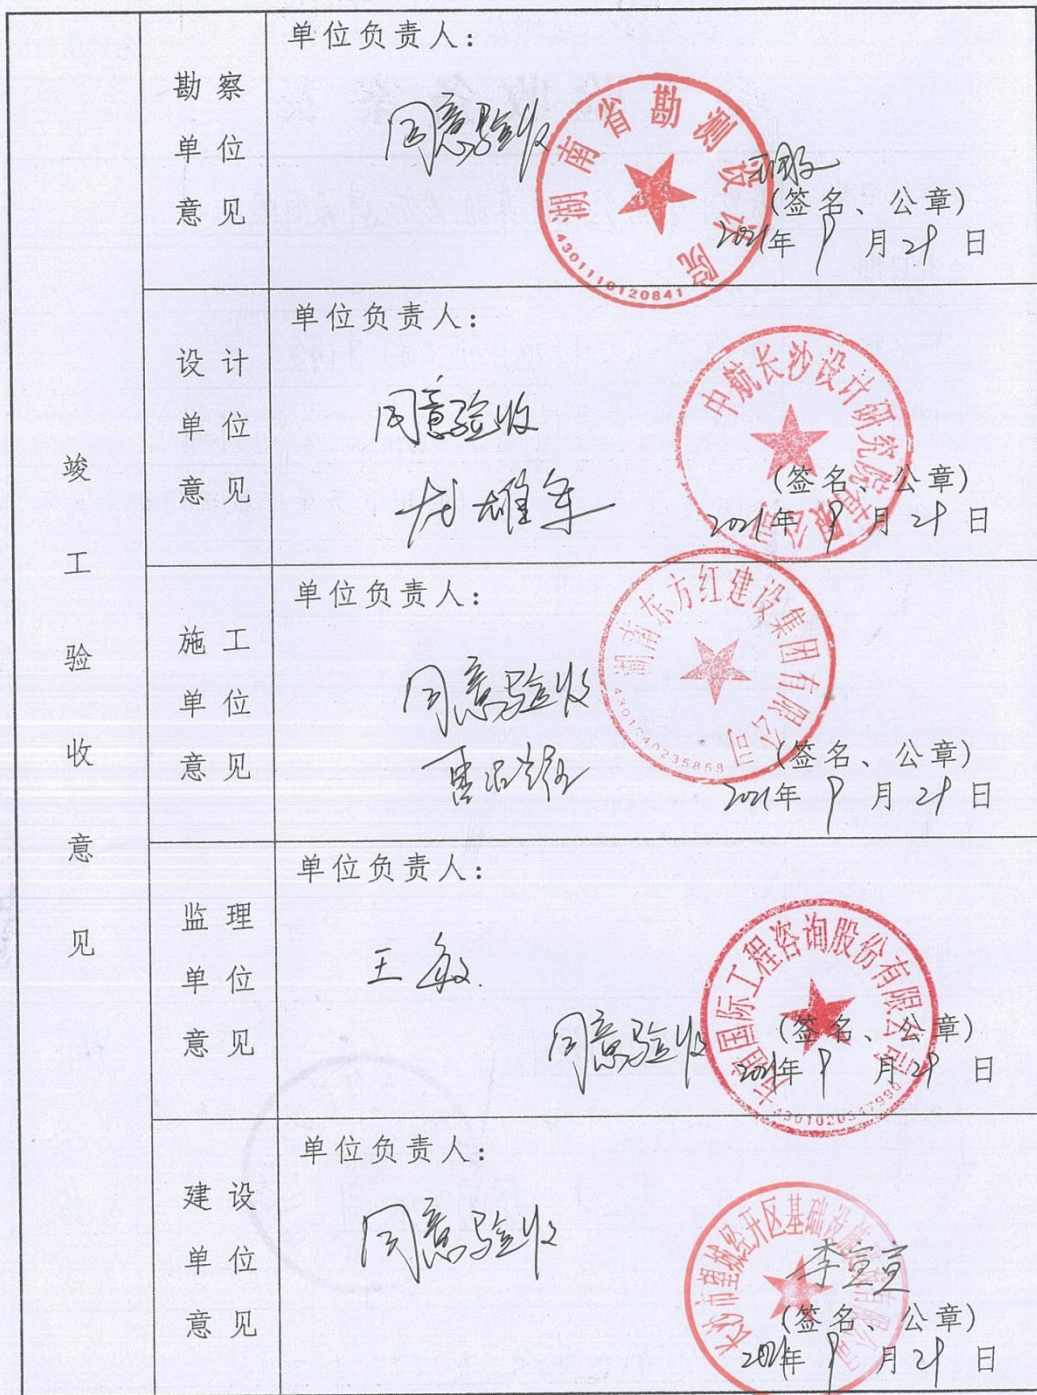 竣工验收意见
勘察单位意见
单位负责人：
同意验收
湖南省勘测设计院
4301110120841
(签名、公章)
2021年 9 月 29 日
设计单位意见
单位负责人：
同意验收
中航长沙设计研究院有限公司
(签名、公章)
2021年 9 月 29 日
施工单位意见
单位负责人：
同意验收
湖南东方红建设集团有限公司
(签名、公章)
2021年 9 月 29 日
监理单位意见
单位负责人：
王敏
同意验收
国际工程咨询股份有限公司
(签名、公章)
2021年 9 月 29 日
建设单位意见
单位负责人：
同意验收
李宣宣
(签名、公章)
2021年 9 月 29 日